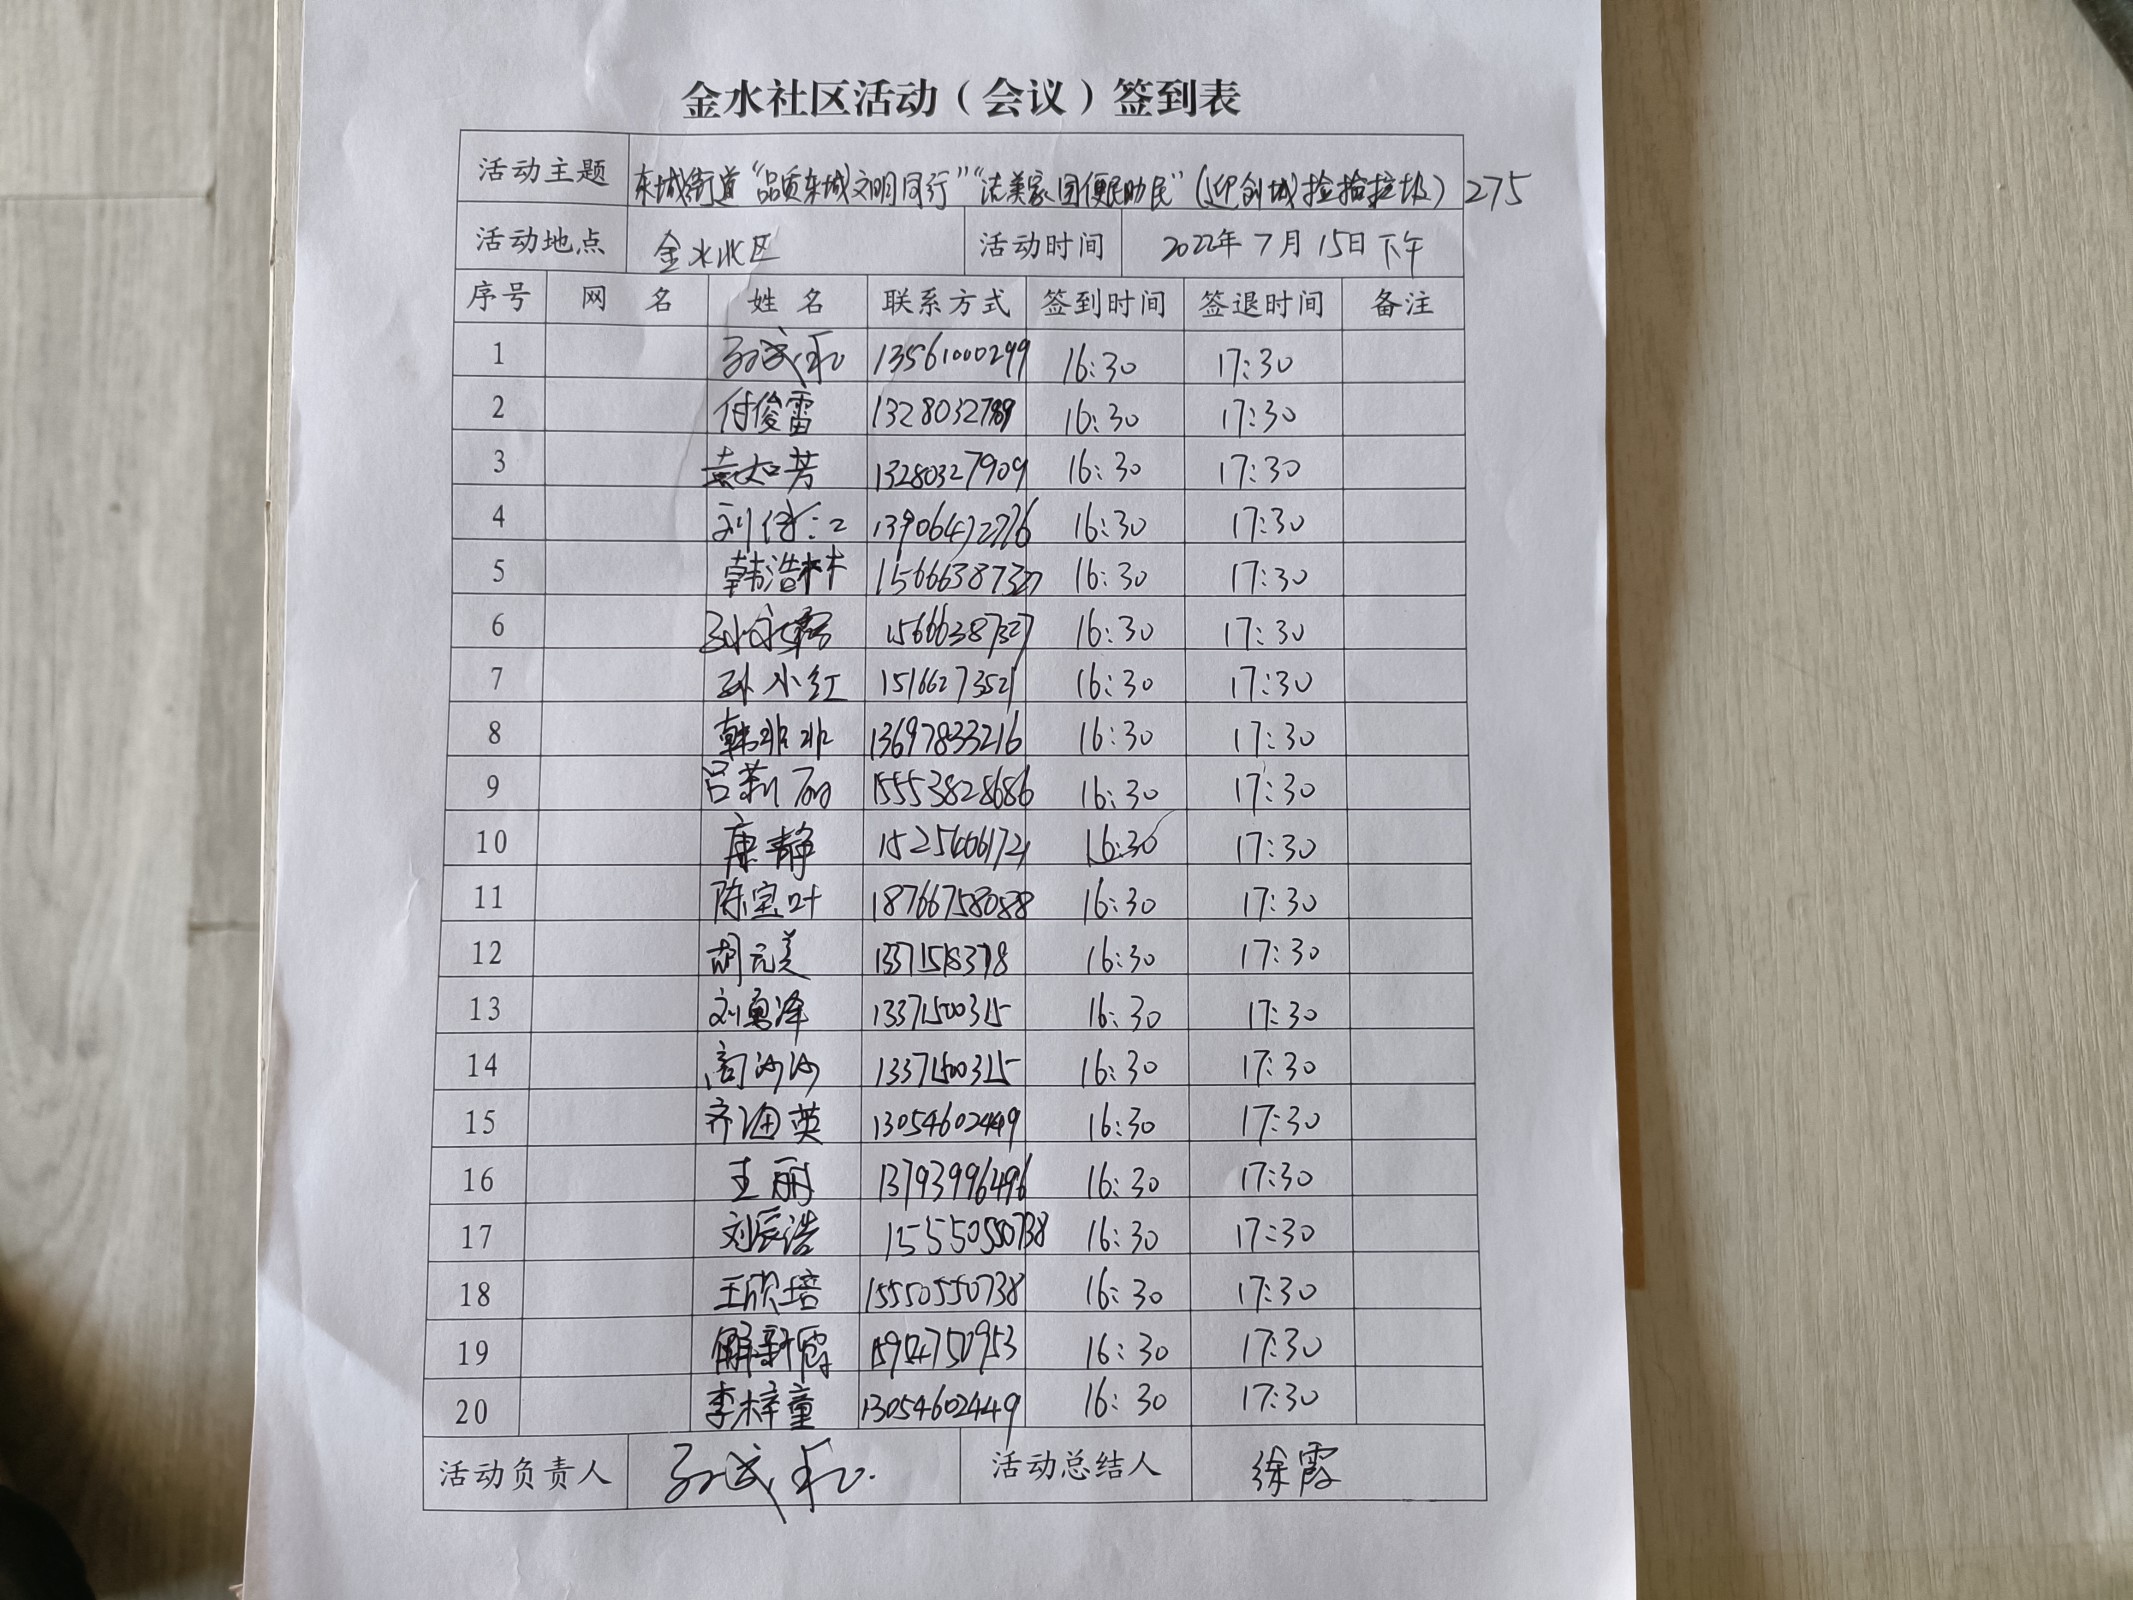 金水社区活动（会议）签到表
活动主题 东城街道“品质东城文明同行”“洁美家园便民助民”（迎创城捡拾垃圾）275
活动地点 金水北区 活动时间 2022年7月15日下午
序号 网名 姓名 联系方式 签到时间 签退时间 备注
1 13561000299 16:30 17:30
2 付俊雷 1328032789 16:30 17:30
3 袁如芳 13280327909 16:30 17:30
4 13906472776 16:30 17:30
5 韩浩林 15666387327 16:30 17:30
6 15666387327 16:30 17:30
7 孙小红 1516627352 16:30 17:30
8 韩非非 13697833216 16:30 17:30
9 吕莉丽 15553828686 16:30 17:30
10 康静 16:30 17:30
11 陈宝叶 18766758088 16:30 17:30
12 胡元美 16:30 17:30
13 刘勇泽 13371500315 16:30 17:30
14 商沙沙 13371500315 16:30 17:30
15 齐海英 13054602449 16:30 17:30
16 王丽 13793996496 16:30 17:30
17 刘辰浩 15550550738 16:30 17:30
18 王欣培 15550550738 16:30 17:30
19 解新霞 16:30 17:30
20 李梓童 13054602449 16:30 17:30
活动负责人 活动总结人 徐霞